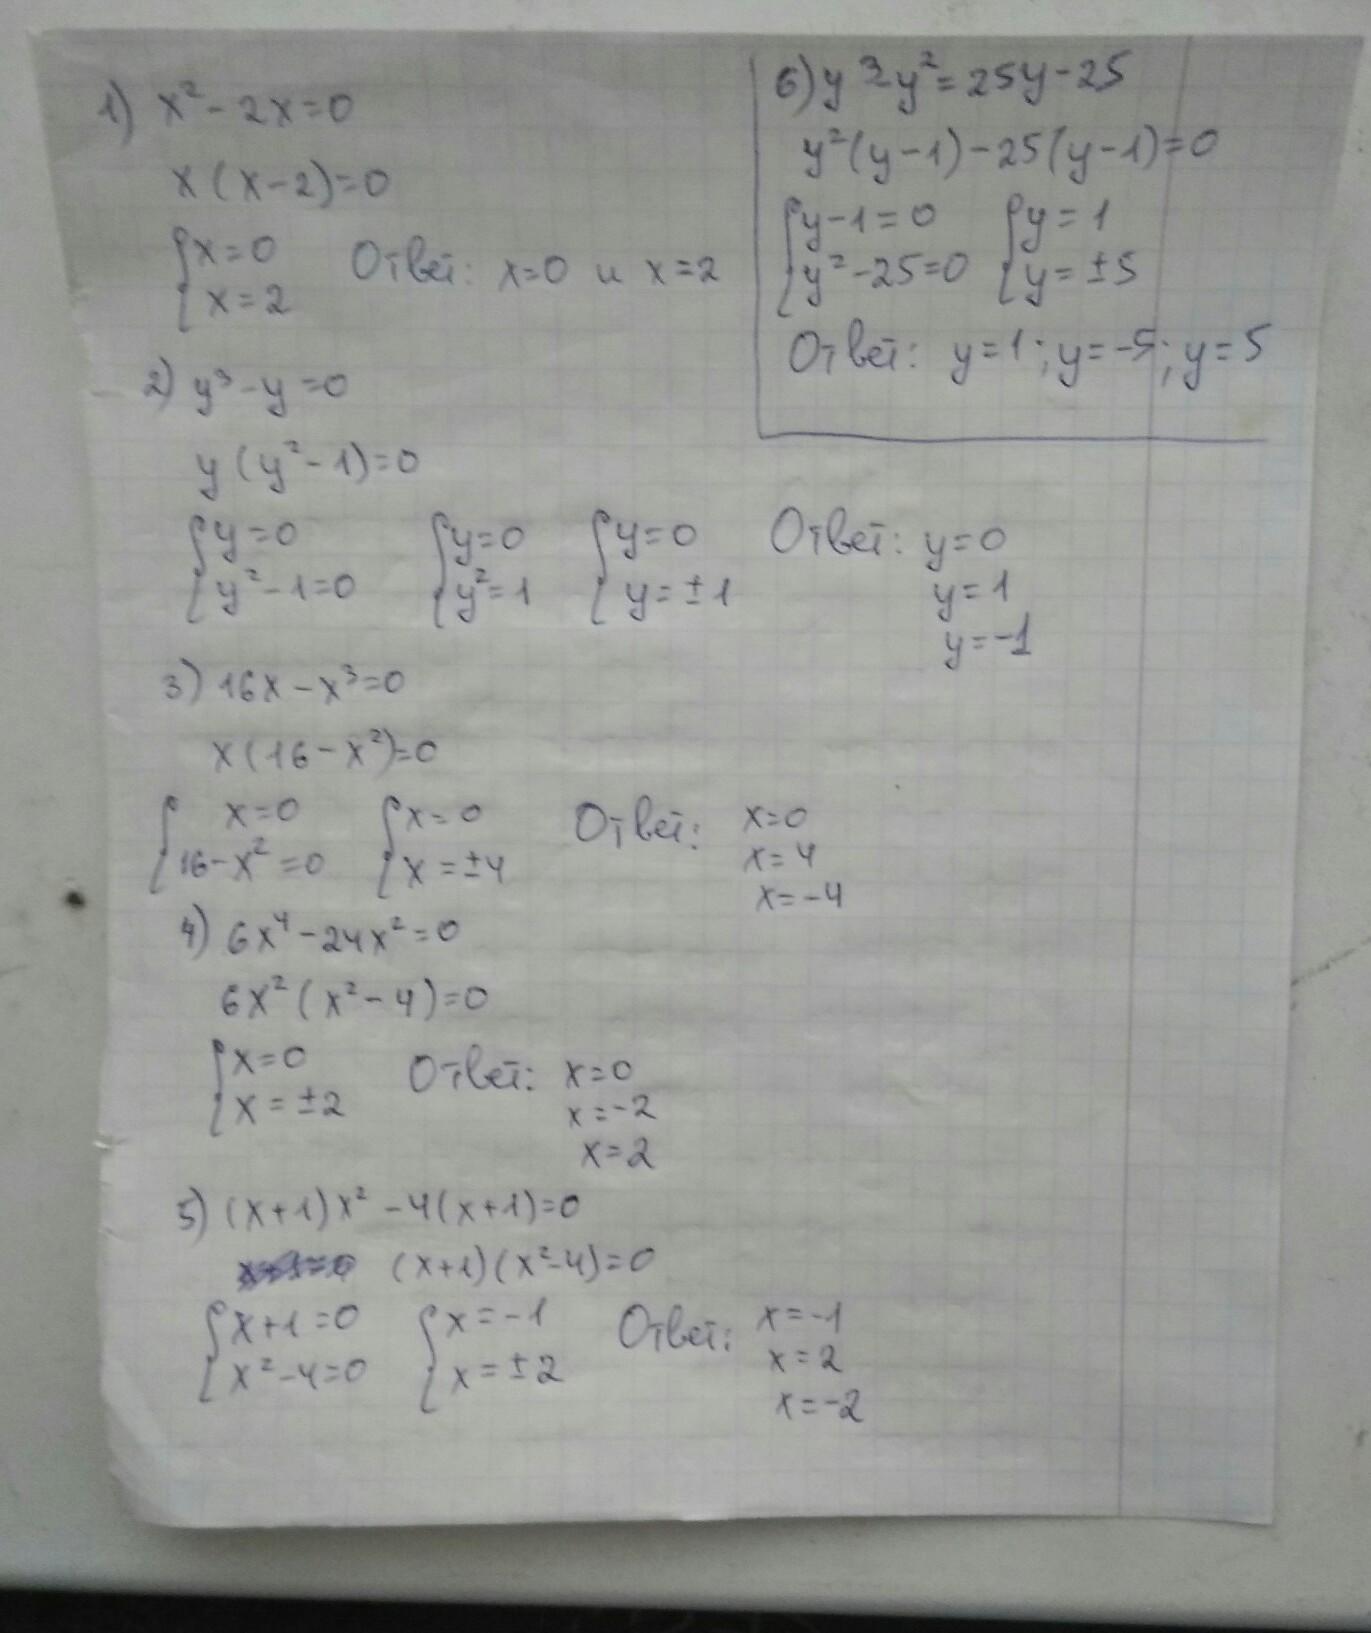 1) x² - 2x = 0
x(x-2)=0
{x=0
{x=2
Ответ: x=0 и x=2
2) y³ - y = 0
y(y²-1)=0
{y=0 {y=0 {y=0
{y²-1=0 {y²=1 {y=±1
Ответ: y=0
y=1
y=-1
3) 16x - x³=0
x(16-x²)=0
{x=0 {x=0
{16-x²=0 {x=±4
Ответ: x=0
x=4
x=-4
4) 6x⁴-24x²=0
6x²(x²-4)=0
{x=0
{x=±2
Ответ: x=0
x=-2
x=2
5) (x+1)x² - 4(x+1)=0
(x+1)(x²-4)=0
{x+1=0 {x=-1
{x²-4=0 {x=±2
Ответ: x=-1
x=2
x=-2
6) y³-y²=25y-25
y²(y-1)-25(y-1)=0
{y-1=0 {y=1
{y²-25=0 {y=±5
Ответ: y=1; y=-5; y=5